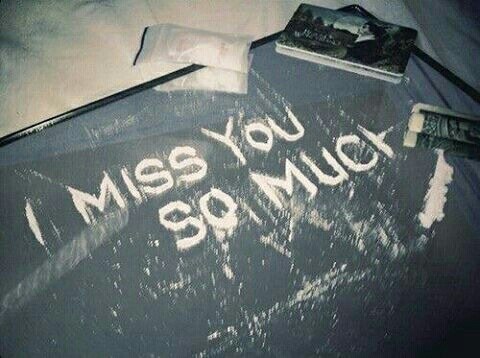 I MISS YOU
SO MUCH